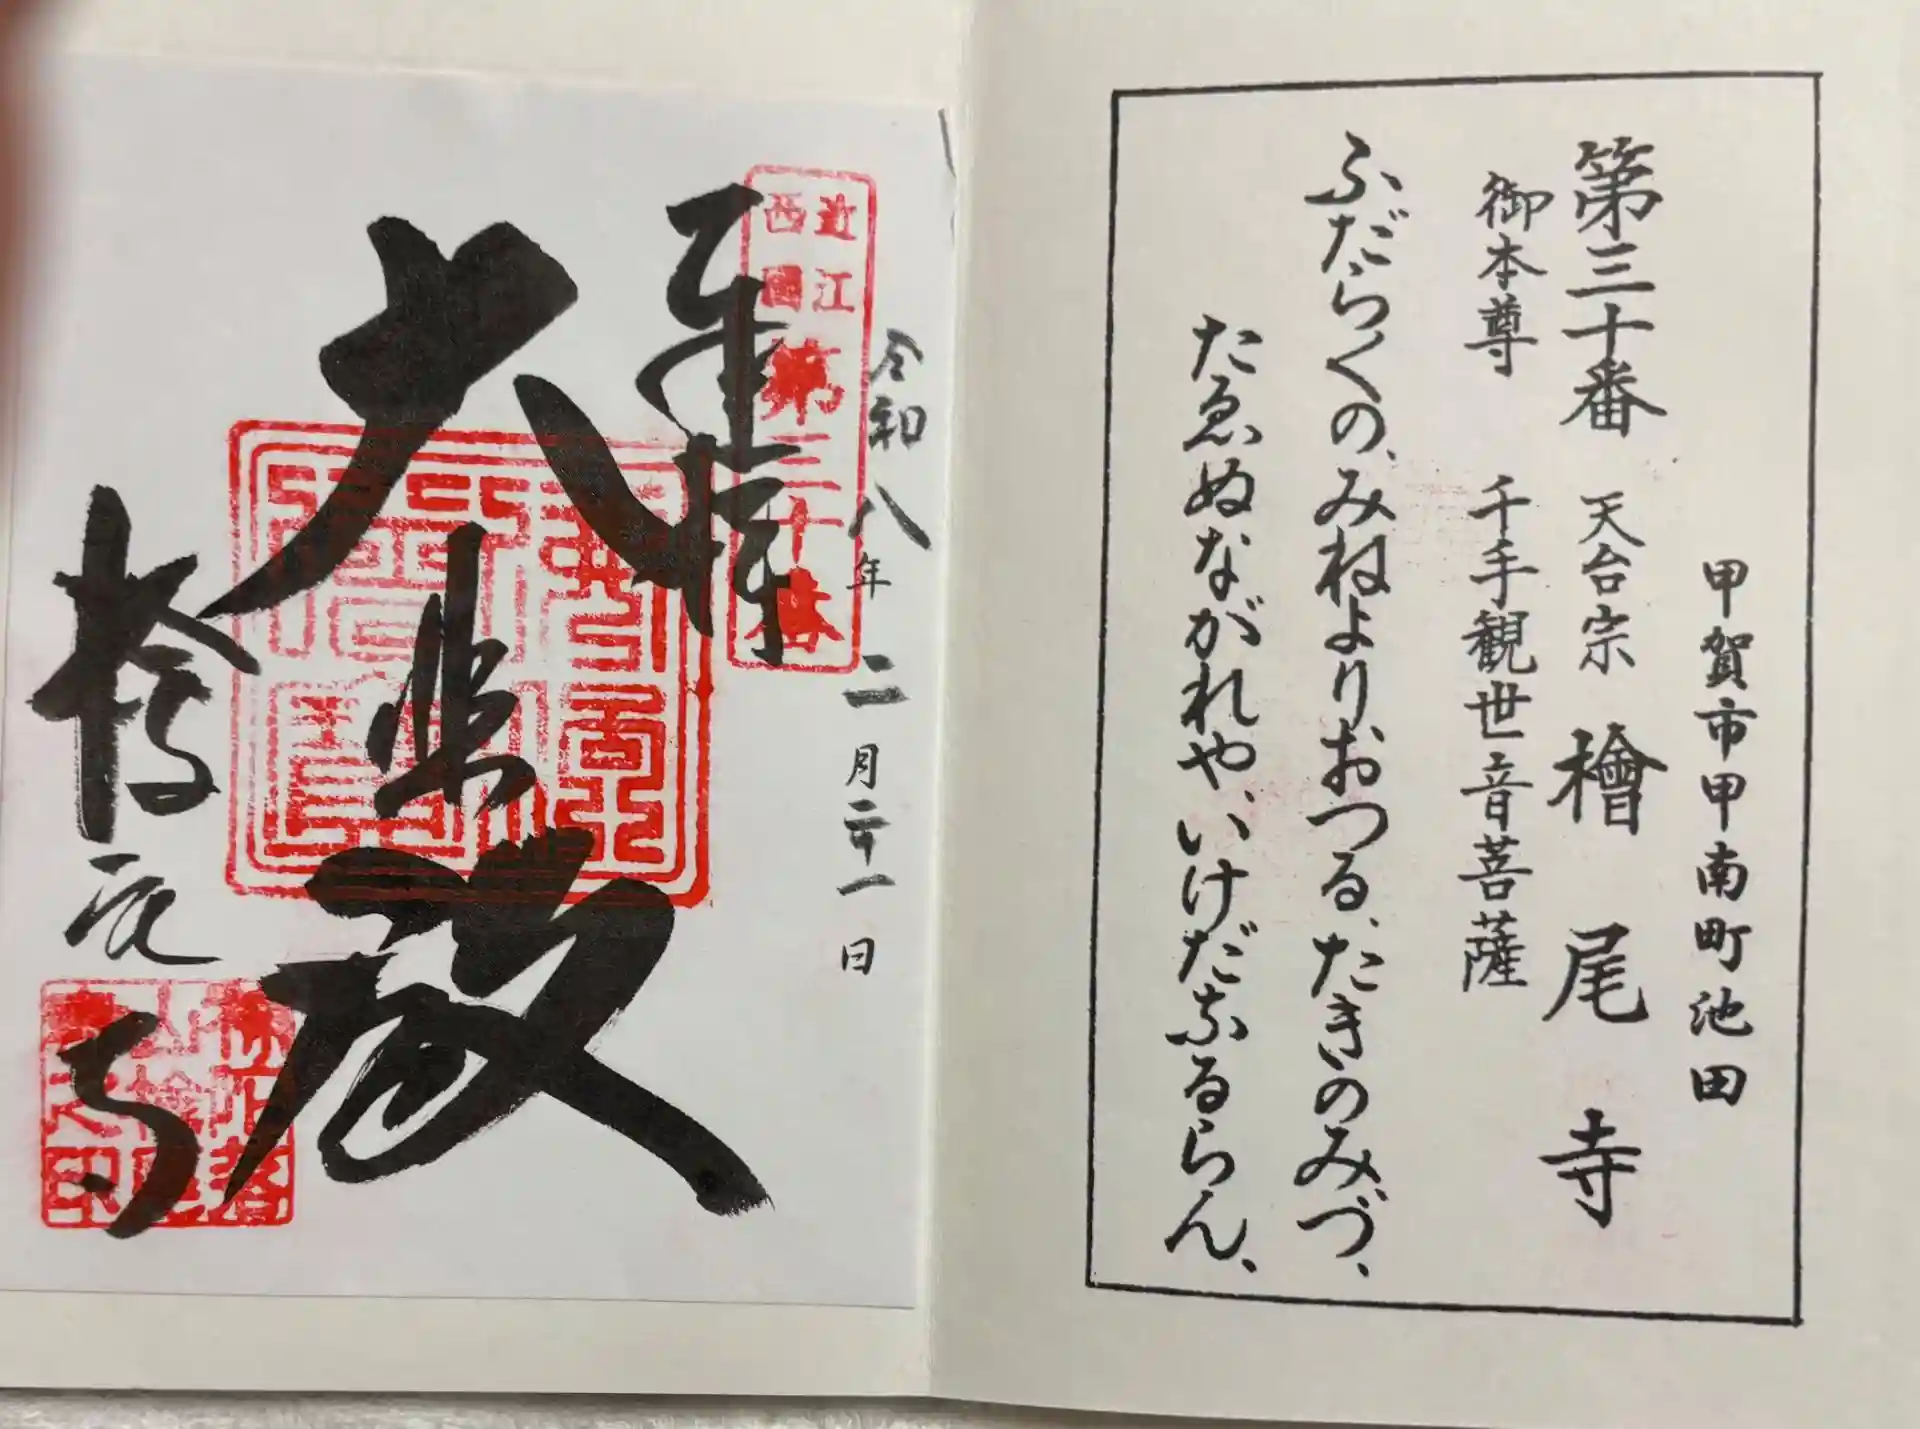 甲賀市甲南町池田
第三十番 天台宗 檜尾寺
御本尊 千手観世音菩薩
ふだらくの、みねよりおつる、たきのみづ、
たゑぬながれや、いけだなるらん、
令和八年二月二十一日
奉拝
近江
西國
第三十番
大悲殿
檜尾寺